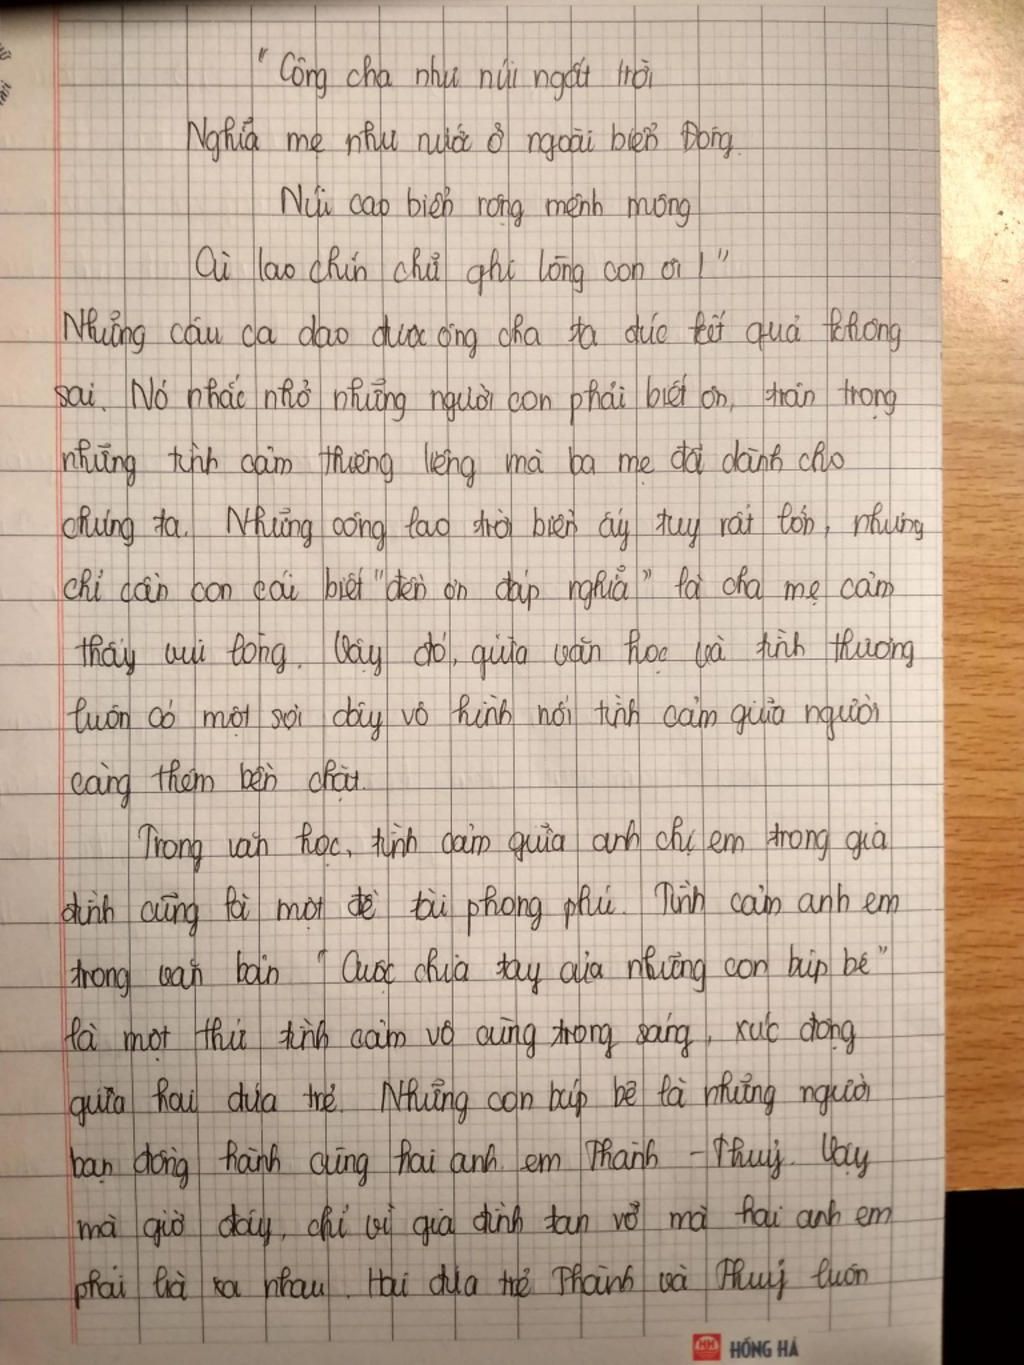 "Công cha như núi ngất trời
Nghĩa mẹ như nước ở ngoài biển Đông.
Núi cao biển rộng mênh mông
Cù lao chín chữ ghi lòng con ơi!"
Những câu ca dao được ông cha ta đúc kết quả không
sai. Nó nhắc nhở những người con phải biết ơn, trân trọng
những tình cảm thương liêng mà ba mẹ đã dành cho
chúng ta. Những công lao trời biển ấy tuy rất lớn, nhưng
chỉ cần con cái biết "đền ơn đáp nghĩa" là cha mẹ cảm
thấy vui lòng. Vậy đó, giữa văn học và tình thương
luôn có một sợi dây vô hình nối tình cảm giữa người
càng thêm bền chặt.
Trong văn học, tình cảm giữa anh chị em trong gia
đình cũng là một đề tài phong phú. Tình cảm anh em
trong văn bản "Cuộc chia tay của những con búp bê"
là một thứ tình cảm vô cùng trong sáng, xúc động
giữa hai đứa trẻ. Những con búp bê là những người
bạn đồng hành cùng hai anh em Thành - Thuỷ. Vậy
mà giờ đây, chỉ vì gia đình tan vỡ mà hai anh em
phải lìa xa nhau. Hai đứa trẻ Thành và Thuỷ luôn
HỒNG HÀ